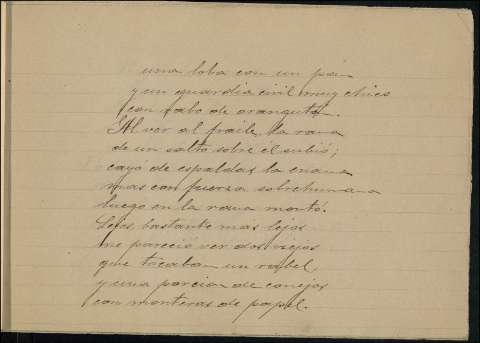 una loba con un pan
y un guardia civil muy chico
con rabo de orangután.
Al ver al fraile, la rana
de un salto sobre él subió;
cayó de espaldas la enana
mas con fuerza sobrehumana
luego en la rana montó.
Lejos, bastante más lejos
me pareció ver dos viejos
que tocaban un rabel
y una porcion de conejos
con monteras de papel.